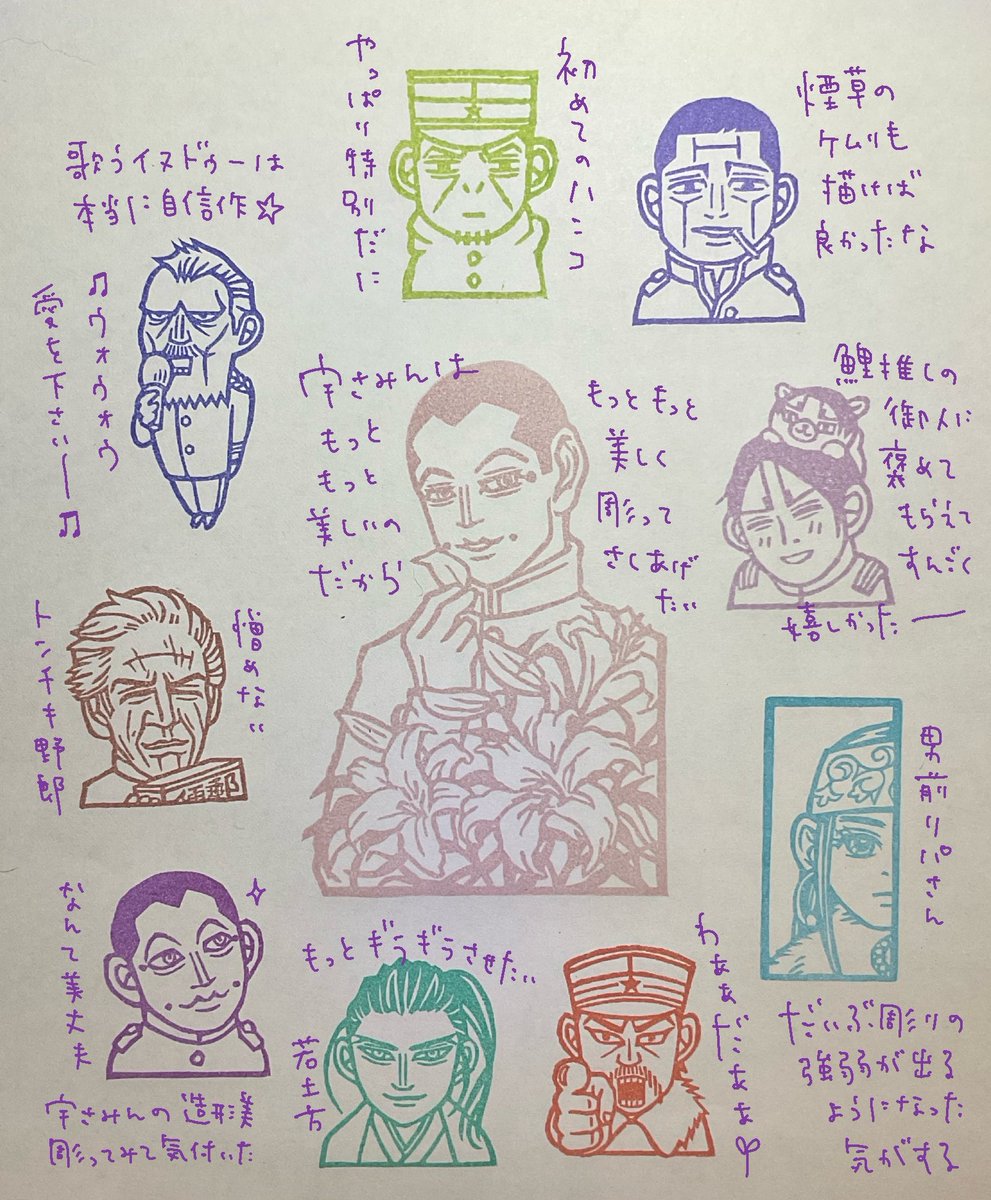 初めてのハンコ
やっぱり特別だに
煙草の
ケムリも
描けば
良かったな
歌うイヌドゥーは
本当に自信作☆
♫ウォウウォウ
愛を下さいー♫
宇さみんは
もっと
もっと
美しいの
だから
もっともっと
美しく
彫って
さしあげ
たい
鯉推しの
御人に
褒めて
もらえて
すんごく
嬉しかったー
憎めない
トンチキ野郎
男前リパさん
だいぶ彫りの
強弱が出る
ようになった
気がする
なんて美丈夫
宇さみんの造形美
彫ってみて気付いた
もっとギラギラさせたい
若土方
わぁぁだぁぁぁ♡